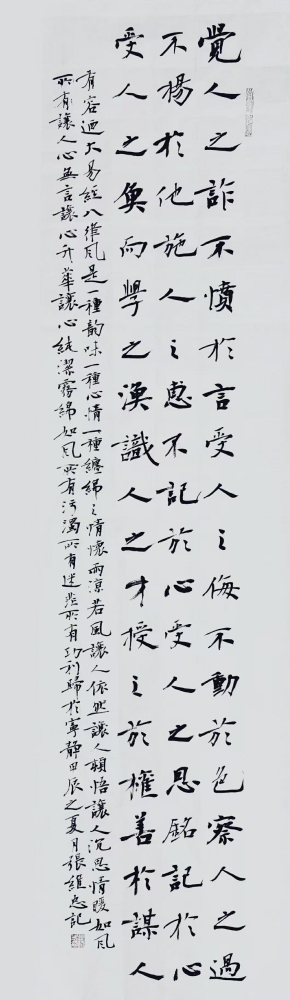 覺人之詐不憤於言受人之侮不動於色察人之過
不揚於他施人之惠不記於心受人之恩銘記於心
受人之魚而學之漁識人之才授之於權善於謀人
有容迺大易經八維風是一種韵味一種心情一種纏綿之情懷雨涼若風讓人依然讓人頓悟讓人沉思情暖如風
所有讓人心無言讓心升華讓心純潔霧綿如風所有污濁所有迷茫所有功利歸於寧靜甲辰之夏月張維忠記